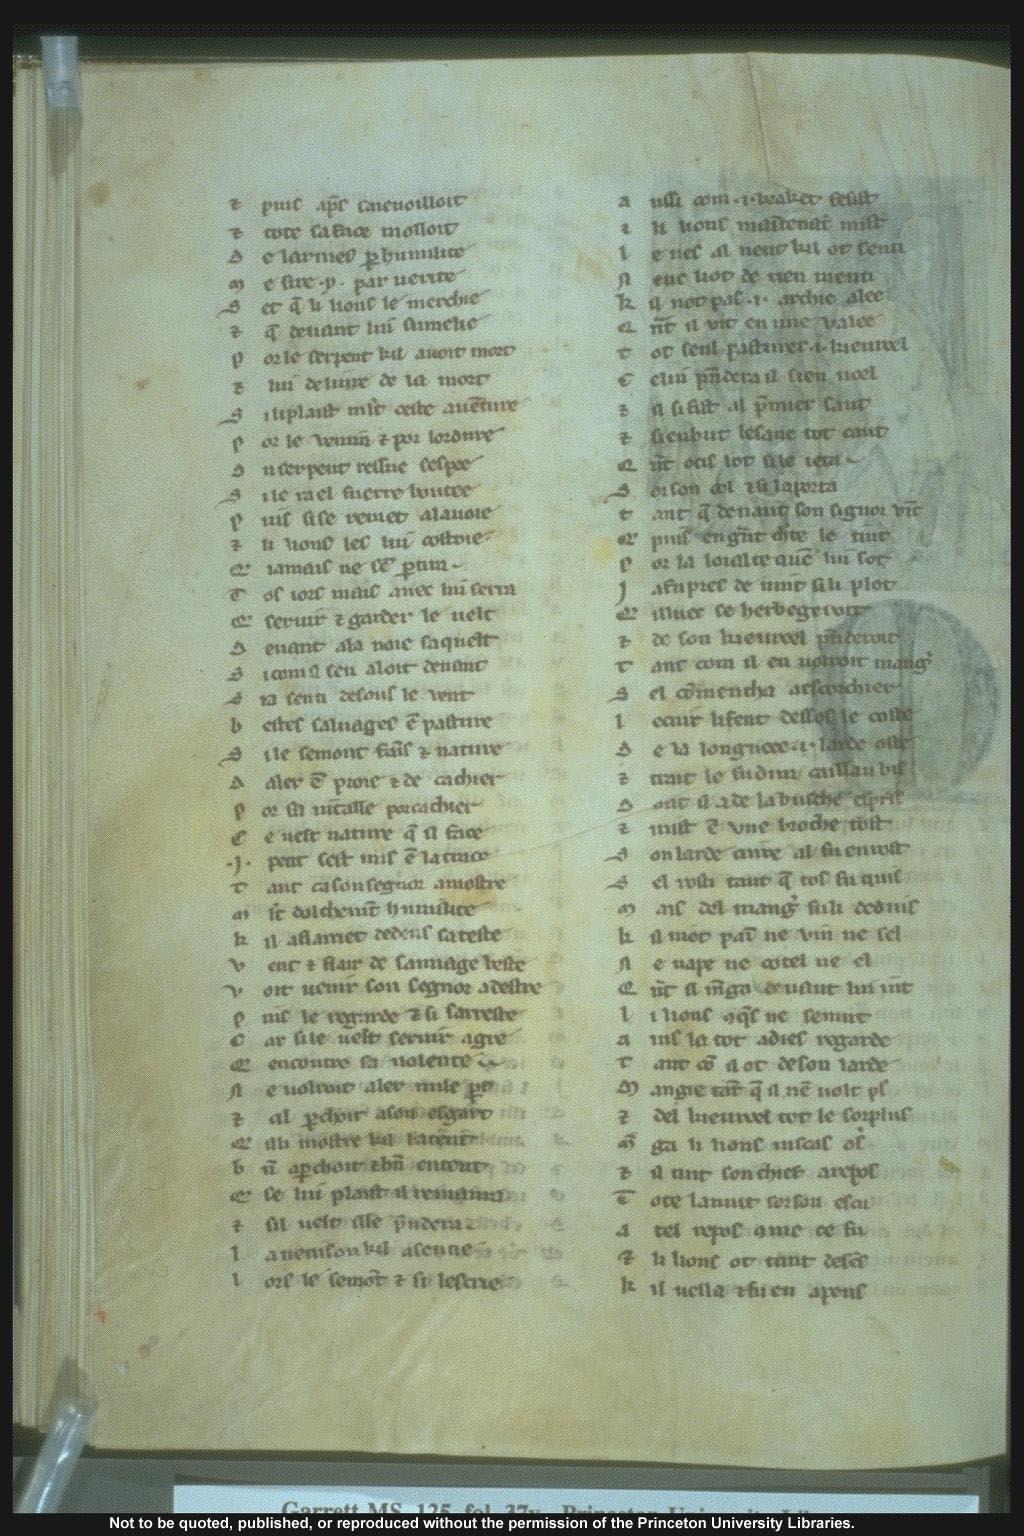 ⁊ puis apˢ s'aienoilloit
⁊ tote sa face molloit
D e larmes ꝑ humilite
M e sire .y. par uerite
S et q̃ li lions le merchie
⁊ q̃ deuant lui sumelie
P or le serpent kil auoit mort
⁊ lui deliure de la mort
S i li plaist mlt ceste auẽture
P or le venim ⁊ por lordure
D u serpent ressue sespee
S i le ra el fuerre boutee
P uis si se remet a la uoie
⁊ li lions les lui costoie
Q' iamais ne sẽ ꝑtira
T os iors mais auec lui serra
Q' seruir ⁊ garder le uelt
D euant a la uoie saquelt
S i com il sen aloit deuant
S i a senti desous le vent
B estes saluages ẽ pasture
S i le semont fains ⁊ nature
D aler ẽ proie ⁊ de cachier
P or sa uitaille porcachier
C e uelt nature q̃ il face
.J. petit sest mis ẽ la trace
T ant ca son segnor a mostre
M
K il a flairet
V ent ⁊ flair de sauuage beste
V oit uenir son segnor a destre
P uis le regarde ⁊ si sarreste
C ar si le uelt seruir a gre
Q' encontre sa uolente
N e uolroit aler nule ꝑt
⁊ al ꝑchoit a son esgart
Q' ili mostre kil latent
B n̄ aꝑchoit ⁊ bn̄ entent
Q' se lui plaist il remanra
⁊ sil uelt ille p̃ndera
L a uenison kil a sentue
L ors le semōt ⁊ si lescrie
A ussi com .i. braket fesist
⁊ li lions maintenāt mist
L e nes al uent kil ot senti
N eue liot de rien menti
K il not pas .i. archie alee
Q n̄t il vit en une valee
T ot seul pasturer .i. kieurel
C elui p̃ndera il sien uoel
⁊ il si fist al p̃mier saut
⁊ si en but le sanc tot caut
Q n̄t ocis lot si le ieta
S or son col ⁊ si laporta
T ant q̃ deuant son signor vĩt
Q' puis en gr̃nt chr̃te le tint
P or la loialte que en lui sot
J a fu pres de nuit si li plot
Q' illuec se herbegeroit
⁊ de son kieurel p̃nderoit
T ant com il en uolroit mang'
S el cōmencha a escorchier
L e cuir li fent dessos le coste
D e la longne .i. larde oste
⁊ trait le fu dun caillau bis
D ont il a de la busche espris
⁊ mist ẽ vne broche tost
S on larde cuire al fu en rost
S el rosti tant q̃ tos fu quis
M ais del mang' fu li deduis
K il mot pai ne vin ne sel
N e nape ne cotel ne el
Q n̄t il m̃ga deuant lui iut
L i lions q̃ꝯs ne se mut
A ins la tot ades regarde
T ant cō il ot de son larde
M angie tāt q̃ il nẽ uolt pl'
⁊ del kieurel tot le sorplus
M̃ ga li lions iuscas os
⁊ il tint son chief a repos
T ote la nuit sor son escu
A tel repos ꝯme ce fu
⁊ li lions ot tant de sẽs
K il uella ⁊ fu en apens
Garrett MS. 125, fol. 37v, Princeton University Libraries
Not to be quoted, published, or reproduced without the permission of the Princeton University Libraries.